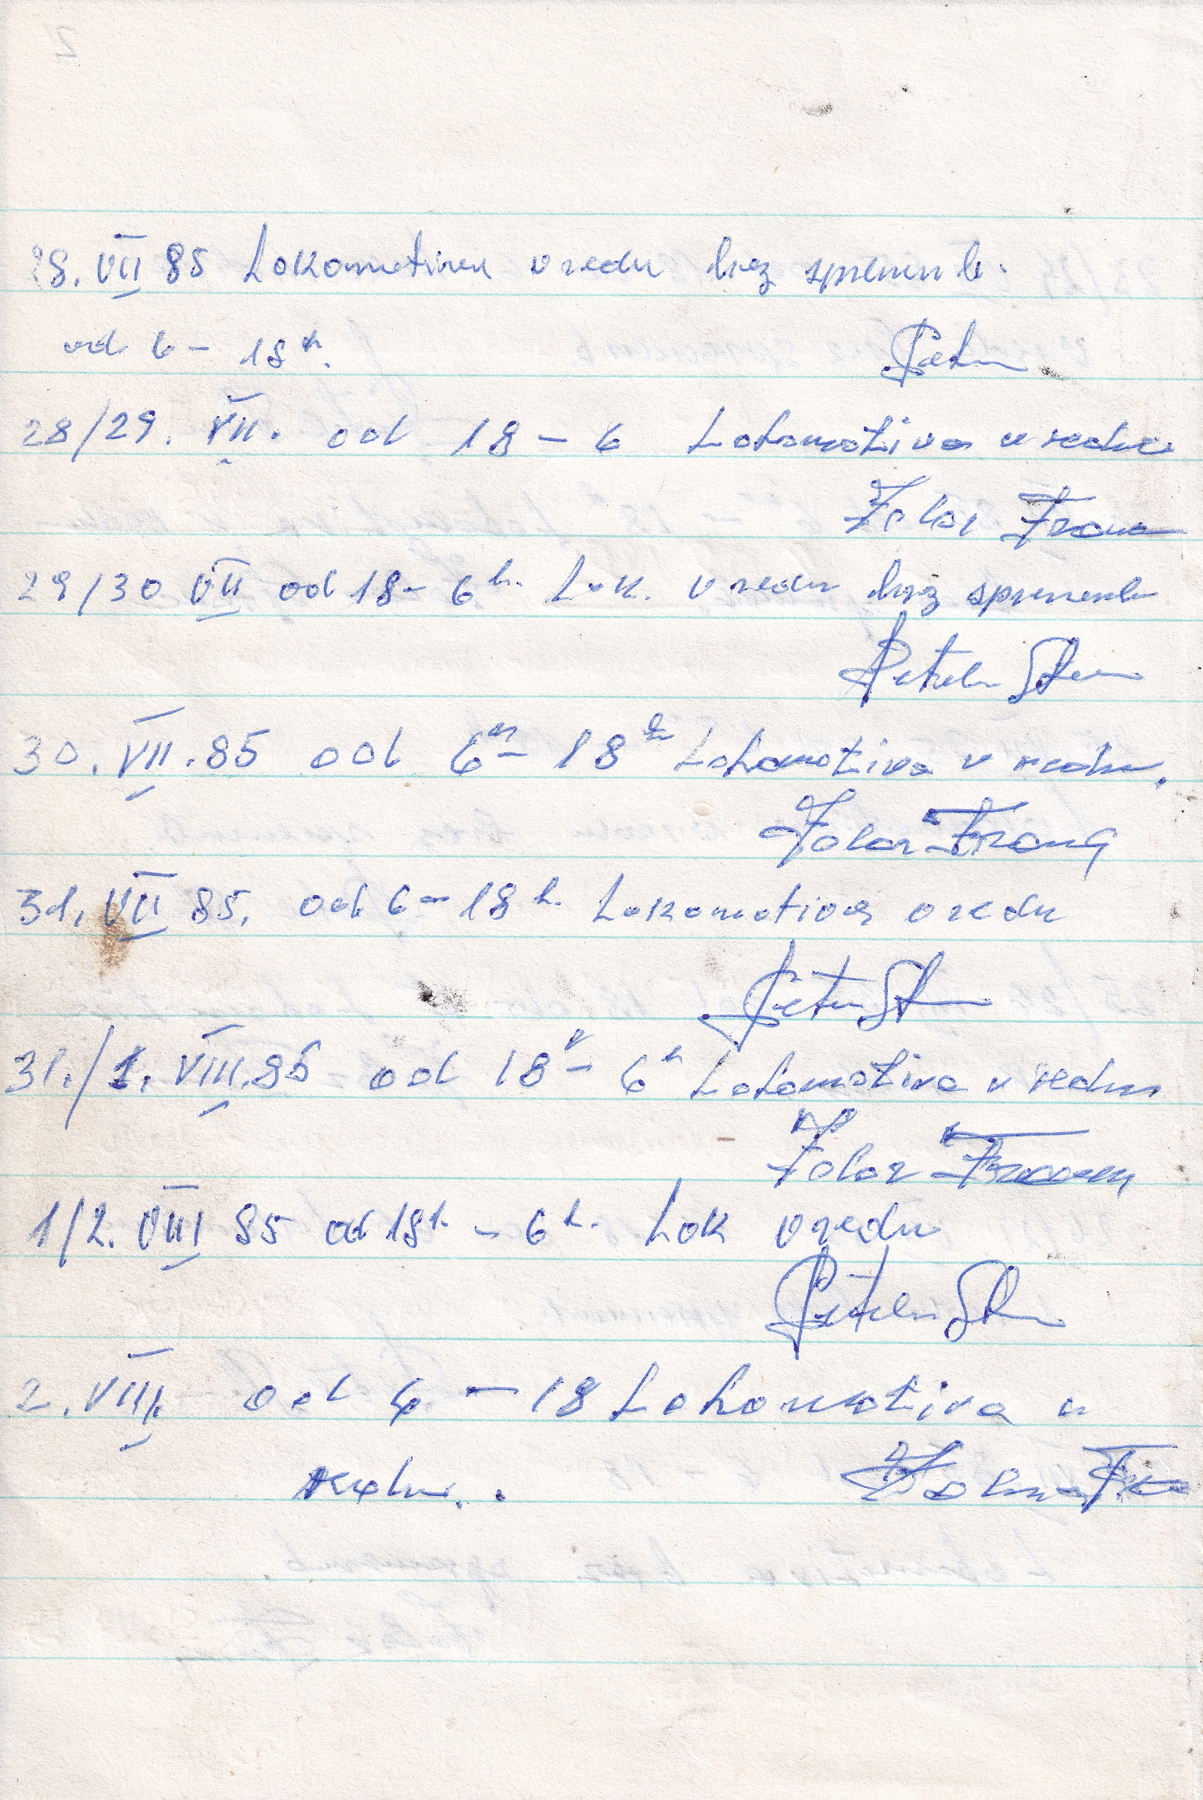 28. VII 85 Lokomotiva v redu brez sprememb.
od 6 - 18 h.
28/29. VII. od 18 - 6 Lokomotiva v redu
Zolar Franc
29/30 VII od 18 - 6 h. Lok. v redu brez sprememb
30. VII. 85 od 6 h - 18 h Lokomotiva v redu.
Zolar Franc
31. VII 85. od 6 - 18 h. Lokomotiva v redu
31./1. VIII. 85 od 18 h - 6 h Lokomotiva v redu
Zolar Franc
1/2. VIII 85 od 18 h. - 6 h. Lok v redu
2. VIII. od 6 - 18 Lokomotiva v
redu.